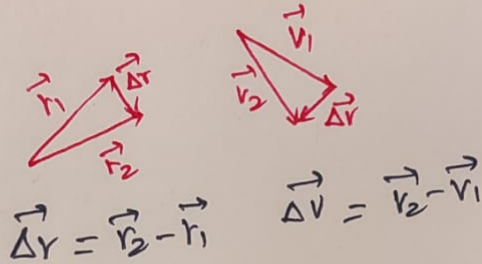 r₁ Δr r₂
V₁ r₂ Δr
Δr = r₂ - r₁
ΔV = r₂ - V₁